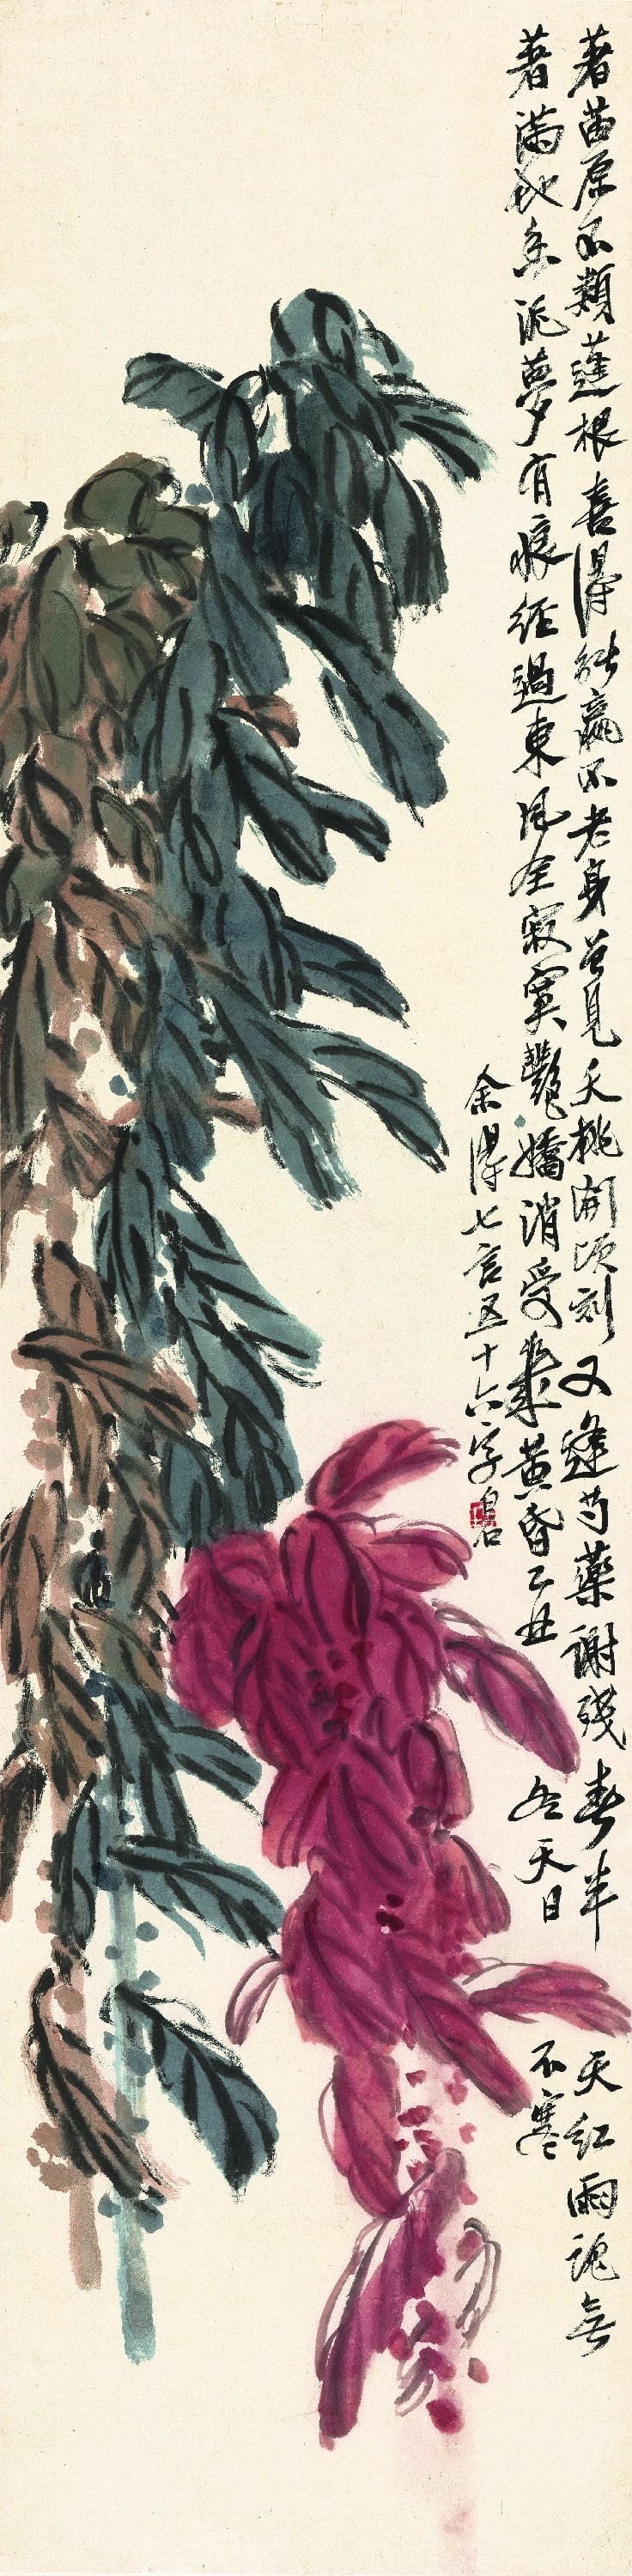 著苗原不類蓬根喜得能嬴不老身曾見夭桃開頃刻又逢芍藥謝殘春半天紅雨魂無
著滿地香泥夢有痕經過東風全寂寞艷嬌消受幾黃昏乙丑冬天日不寒
余得七言五十六字白石